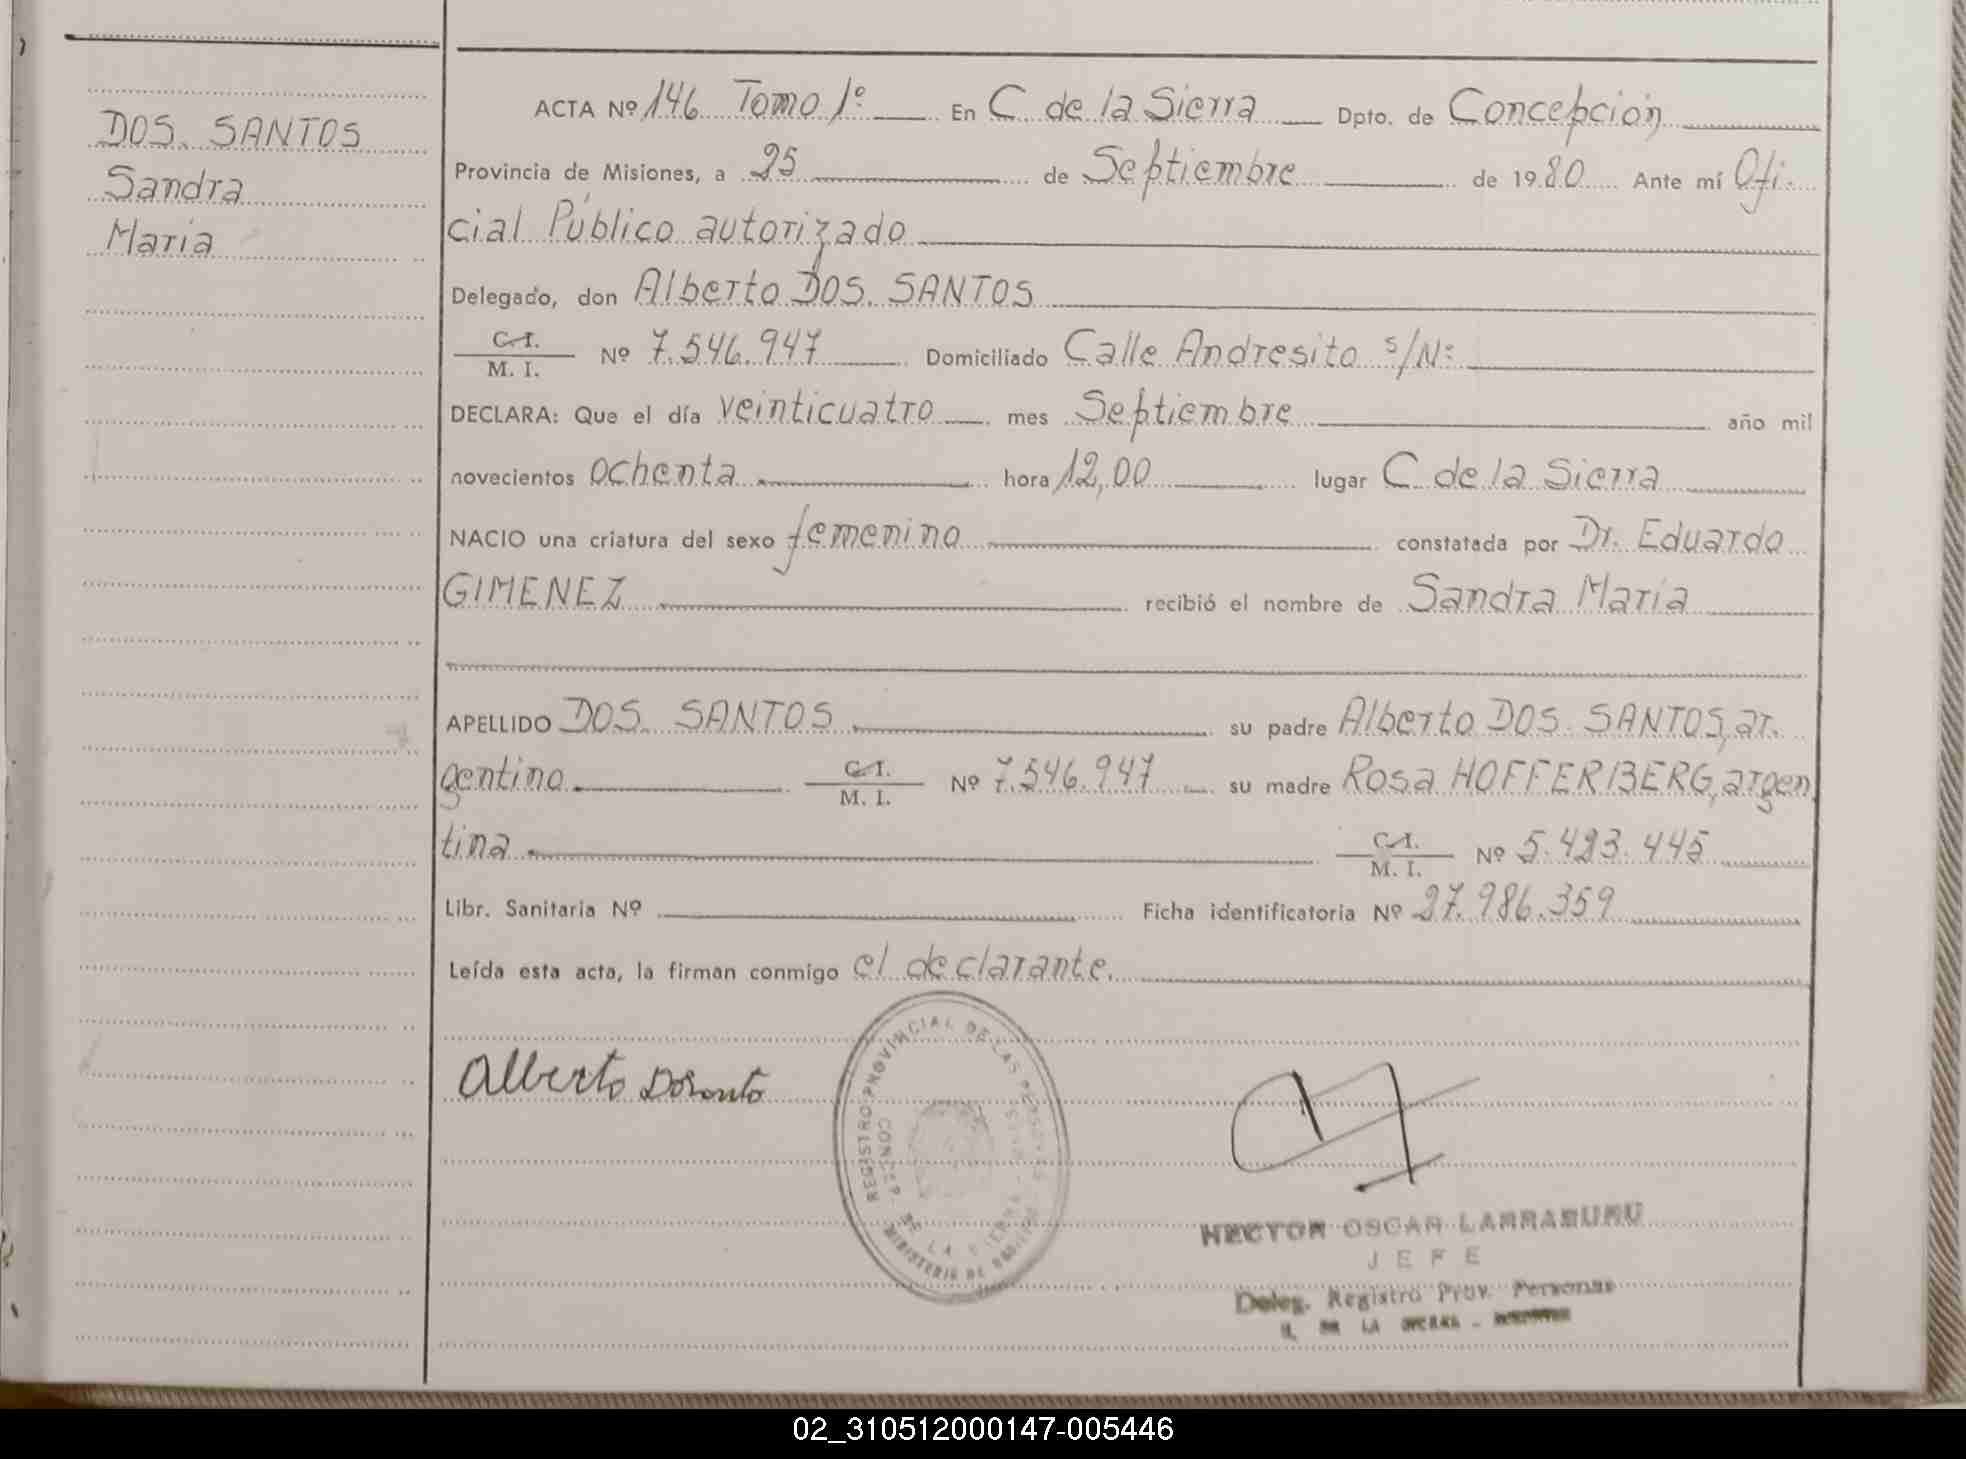 DOS. SANTOS
Sandra
Maria
ACTA Nº 146 Tomo 1º En C. de la Sierra Dpto. de Concepción
Provincia de Misiones, a 25 de Septiembre de 1980 Ante mí Ofi-
cial Público autorizado
Delegado, don Alberto DOS. SANTOS
C. I.
M. I. Nº 7.546.947 Domiciliado Calle Andresito s/Nº
DECLARA: Que el día veinticuatro mes Septiembre año mil
novecientos ochenta hora 12,00 lugar C. de la Sierra
NACIO una criatura del sexo femenino constatada por Dr. Eduardo
GIMENEZ recibió el nombre de Sandra Maria
APELLIDO DOS. SANTOS su padre Alberto DOS. SANTOS, ar.
gentino C. I.
M. I. Nº 7.546.947 su madre Rosa HOFFERBERG, argen
tina C. I.
M. I. Nº 5.423.445
Libr. Sanitaria Nº Ficha identificatoria Nº 27.986.359
Leída esta acta, la firman conmigo el declarante.
Alberto Dosantos
REGISTRO PROVINCIAL DE LAS PERSONAS
CONCEP. DE LA SIERRA
MINISTERIO DE GOBIERNO
HECTOR OSCAR LARRABURU
JEFE
Deleg. Registro Prov. Personas
C. DE LA SIERRA - MISIONES
02_310512000147-005446